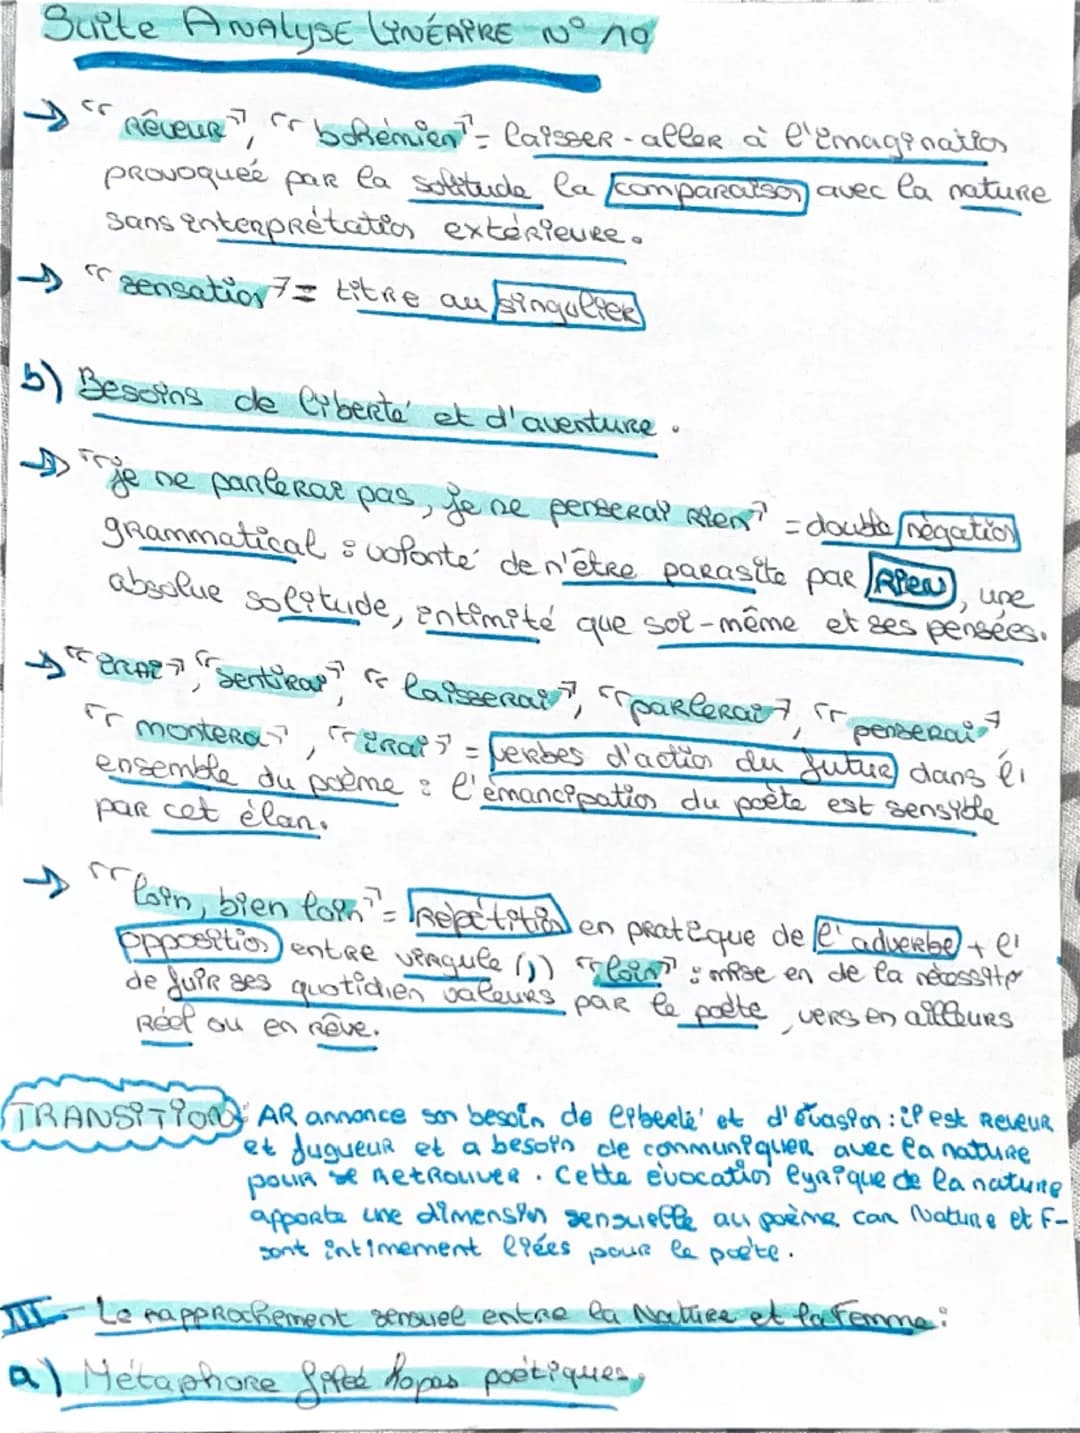 Suite ANALYSE LINÉAIRE N° 10
→ "RÊVEUR", "bohémien" = laisser-aller à l'imagination
provoquée par la solitude la comparaison avec la nature
sans interprétation extérieure.
→ "sensation" = titre au singulier
b) Besoins de liberté et d'aventure.
→ "je ne parlerai pas, je ne penserai rien" = double négation
grammatical : volonté de n'être parasite par Rien, une
absolue solitude, intimité que soi-même et ses pensées.
→ "irai", "sentirai", "laisserai", "parlerai", "penserai"
"montera", "irai" = verbes d'action du futur dans l'
ensemble du poème : l'émancipation du poète est sensible
par cet élan.
→ "loin, bien loin" = Répétition en pratique de l'adverbe + l'
opposition entre virgule (,) "loin" : mise en de la nécessité
de fuir ses quotidien valeurs par le poète, vers en ailleurs
Réel ou en rêve.
TRANSITION : AR annonce son besoin de liberté et d'évasion : il est REVEUR
et fugueur et a besoin de communiquer avec la nature
pour se retrouver. Cette évocation lyrique de la nature
apporte une dimension sensuelle au poème car Nature et F-
sont intimement liées pour le poète.
III - Le rapprochement sensuel entre la Nature et la Femme :
a) Métaphore poétiques.